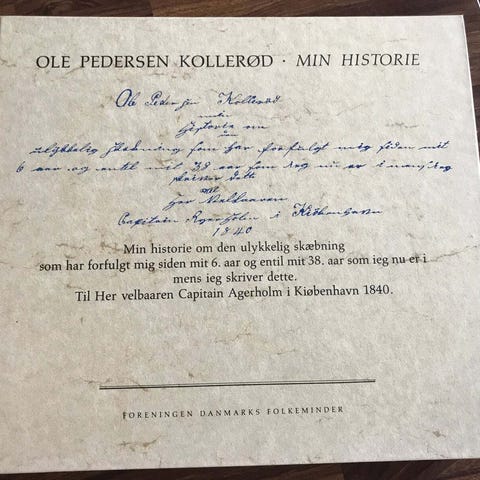 OLE PEDERSEN KOLLERØD · MIN HISTORIE
Ole Pedersen Kollerød
historie om
ulykkelig skæbning som har forfulgt mig siden mit
6 aar og entil mit 38 aar som jeg nu er i mens jeg
skriver dette
til
Her Velbaaren
Capitain Agerholm i Kiøbenhavn
1840
Min historie om den ulykkelig skæbning
som har forfulgt mig siden mit 6. aar og entil mit 38. aar som ieg nu er i
mens ieg skriver dette.
Til Her velbaaren Capitain Agerholm i Kiøbenhavn 1840.
FORENINGEN DANMARKS FOLKEMINDER